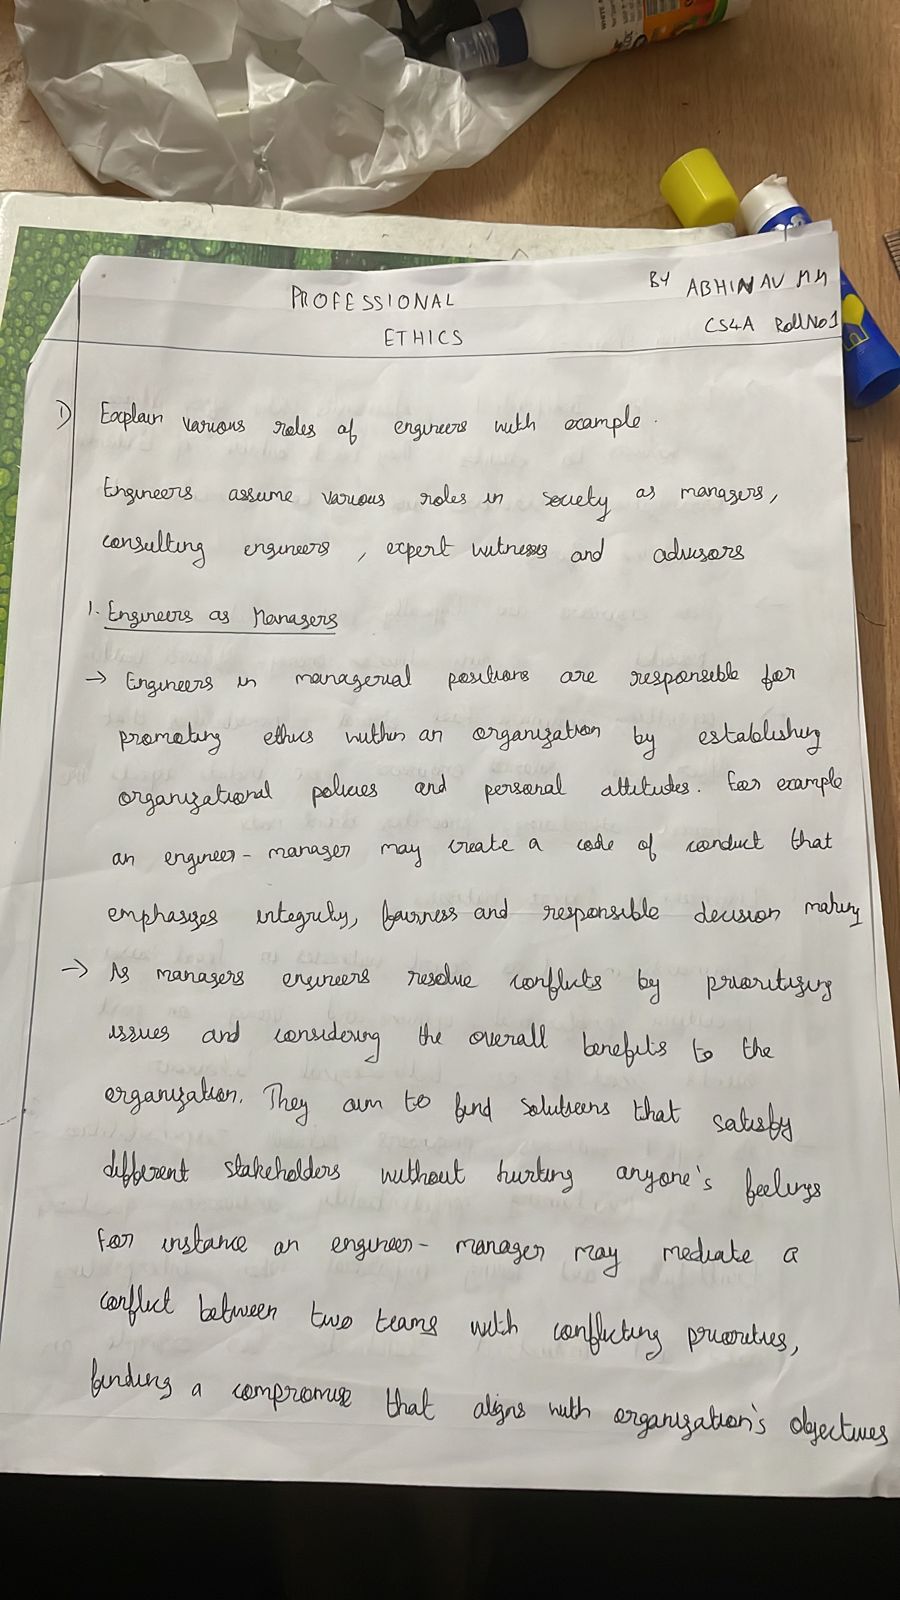 PROFESSIONAL
ETHICS
BY ABHINAV MM
CS4A Roll No 1
1) Explain various roles of engineers with example.
Engineers assume various roles in society as managers,
consulting engineers, expert witness and advisors
1. Engineers as Managers
→ Engineers in managerial positions are responsible for
promoting ethics within an organization by establishing
organizational policies and personal attitudes. For example
an engineer-manager may create a code of conduct that
emphasizes integrity, fairness and responsible decision making
→ As managers engineers resolve conflicts by prioritizing
issues and considering the overall benefits to the
organization. They aim to find solutions that satisfy
different stakeholders without hurting anyone's feelings
For instance an engineer-manager may mediate a
conflict between two teams with conflicting priorities,
finding a compromise that aligns with organization's objectives